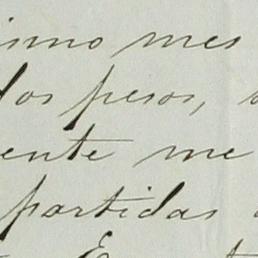 ismo mes
dos pesos,
ente me
partidas